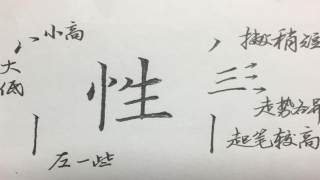 小高
大低
左一些
性
撇稍短
走势各异
起笔较高